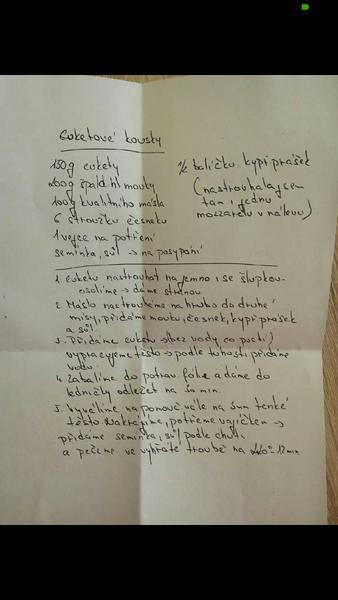 Cuketové kousky
150g cukety
200g špald hl mouky
100g kvalitního másla
6 stroužků česneku
1 vejce na potření
semínka, sůl → na posypání
1/2 balíčku kypř prášek
(nastrouhala jsem
tam i jednu
mozzarelu v nálevu)
1. Cuketu nastrouhat na jemno i se šlupkou.
osolíme → dáme stranou
2. Máslo nastrouháme na hrubo do druhé
mísy, přidáme mouku, česnek, kypř prášek
a sůl
3. Přidáme cuketu →(bez vody co pustí)
vypracujeme těsto → podle tuhosti přidáme
vodu
4. Zabalíme do potrav. folie a dáme do
ledničky odležet na 30 min.
5. Vyválíme na pomouč. vále na 5mm tenké
těsto. Nakrájíme, potřeme vajíčkem →
přidáme semínka, sůl podle chuti
a pečeme ve vyhřáté troubě na 12 min